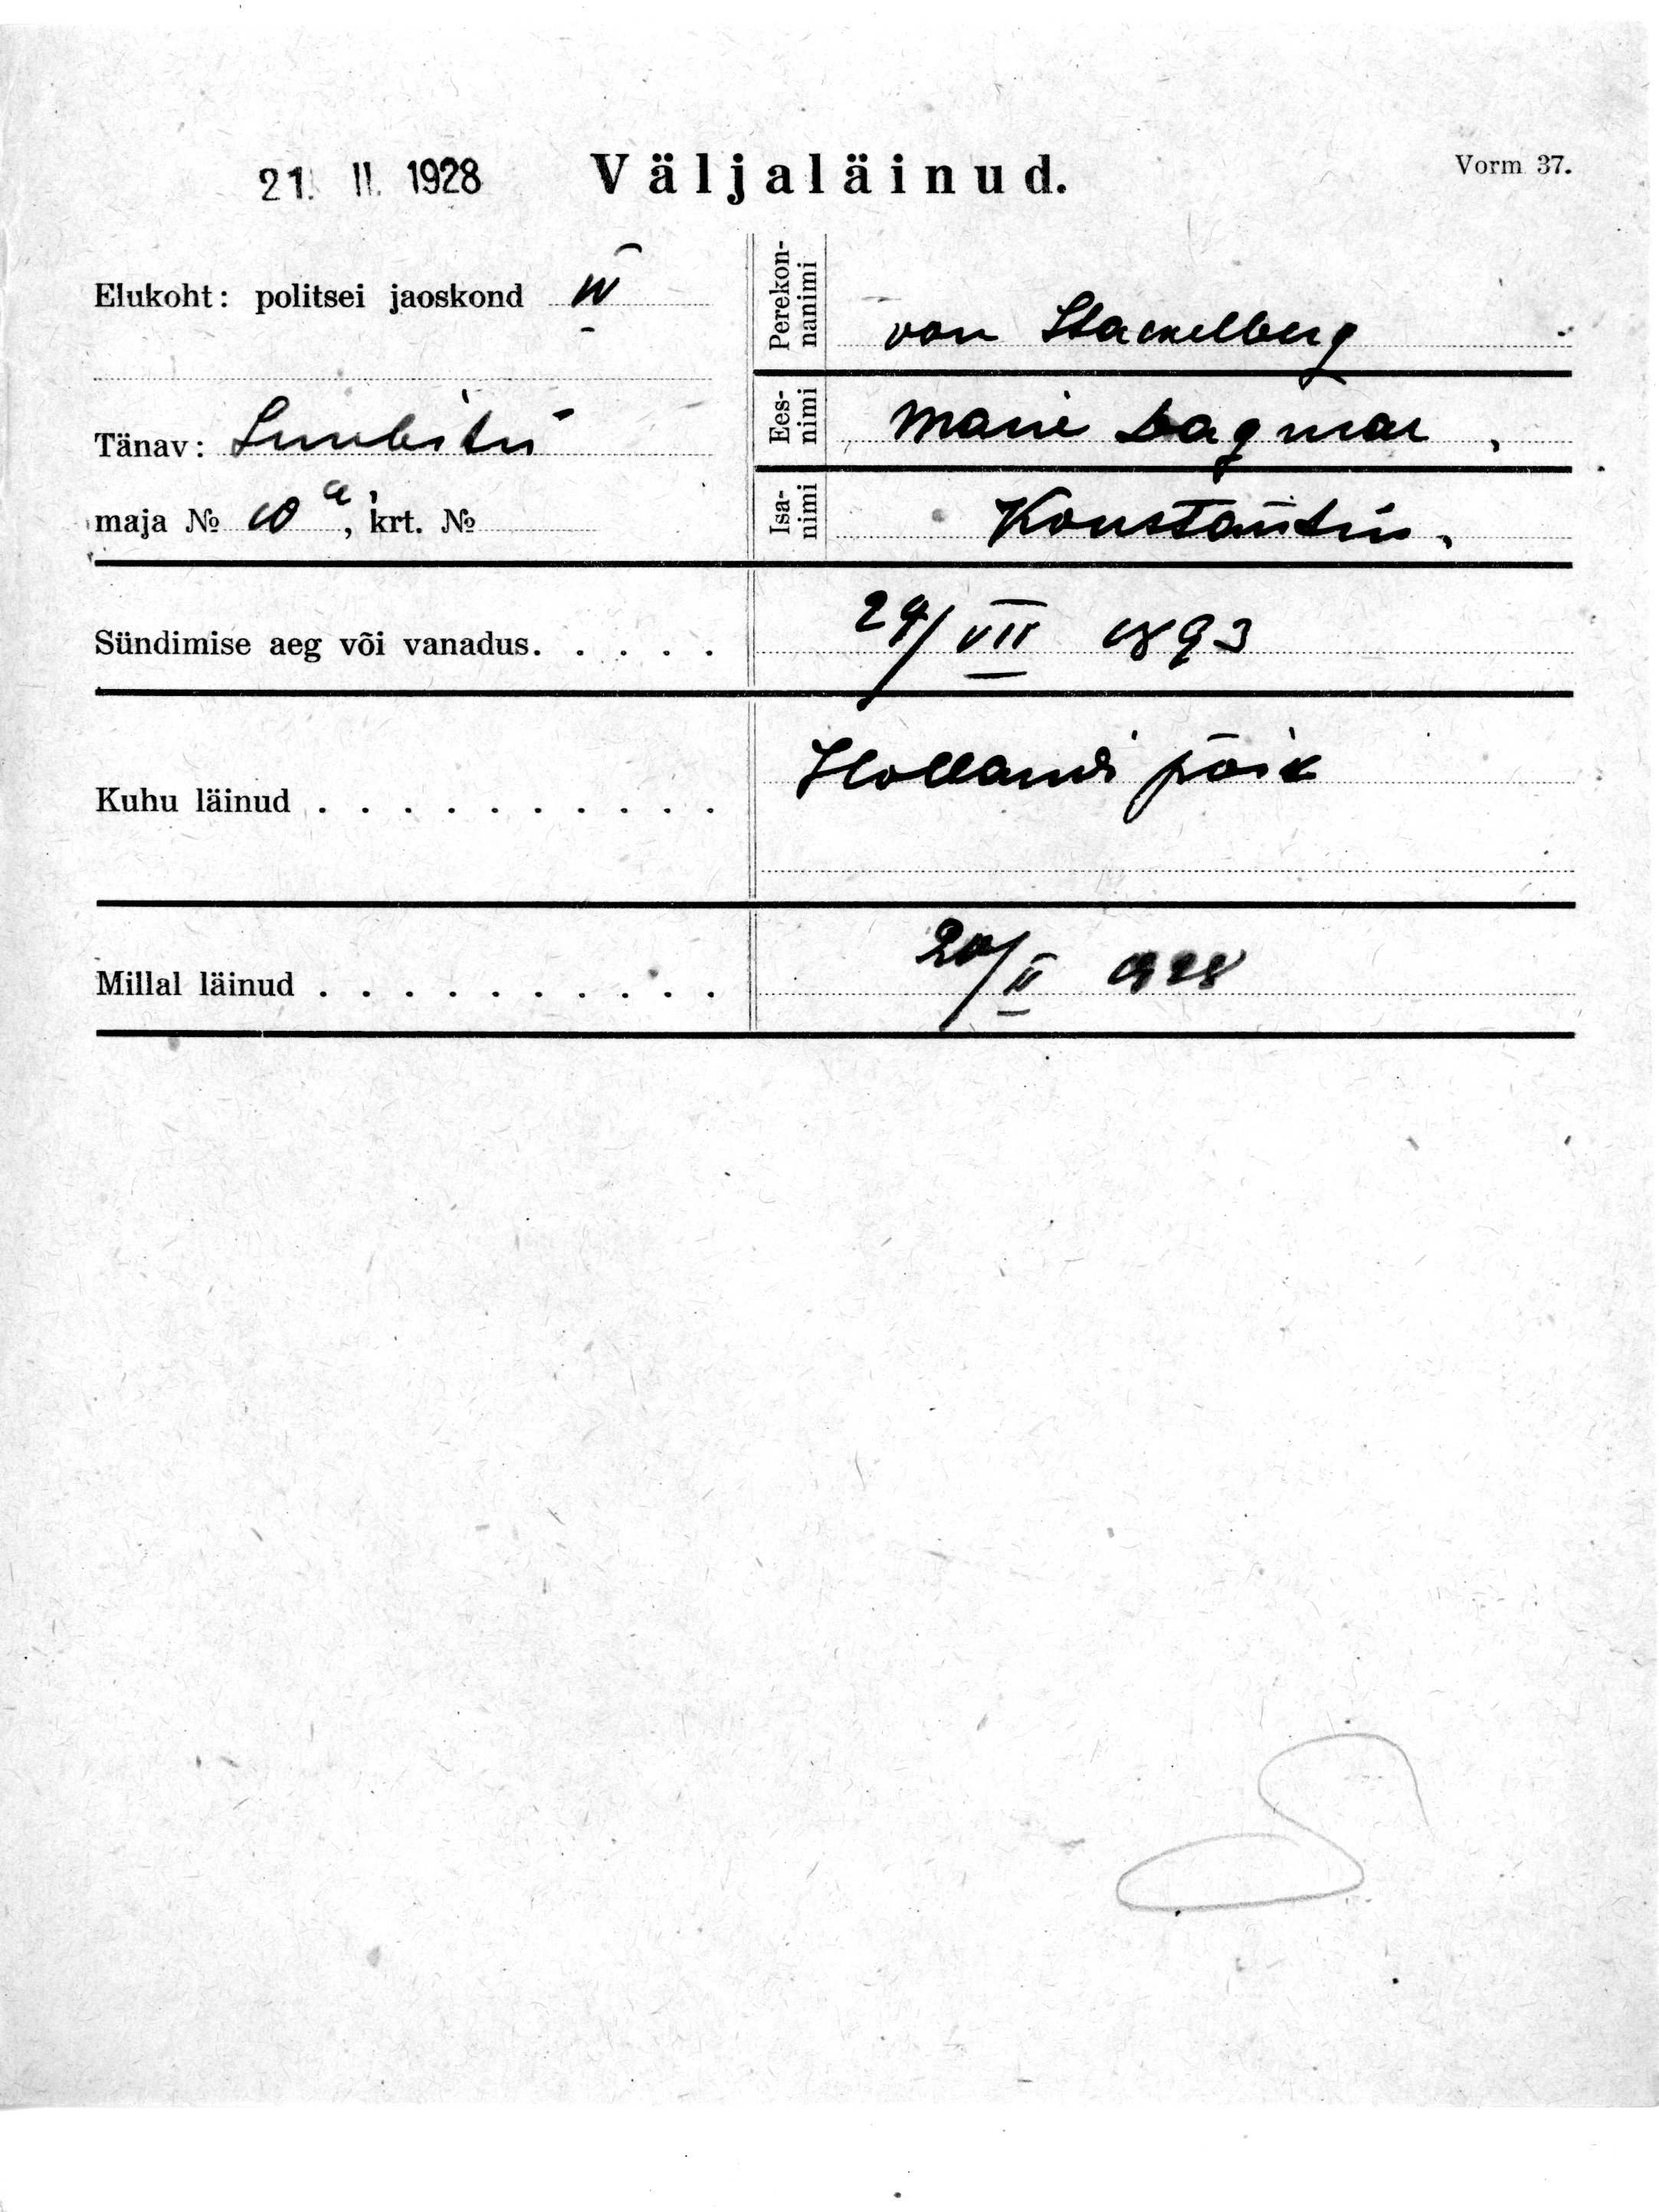 21. II. 1928 Väljaläinud. Vorm 37.
Elukoht: politsei jaoskond IV
Perekonnanimi von Stackelberg
Tänav: Luubitu
Eesnimi Marie Dagmar,
maja № 10 a, krt. №
Isanimi Konstantin.
Sündimise aeg või vanadus. . . . . 24/VII 1893
Kuhu läinud . . . . . . . . . . Hollandi põik
Millal läinud . . . . . . . . . . 20/II 1928